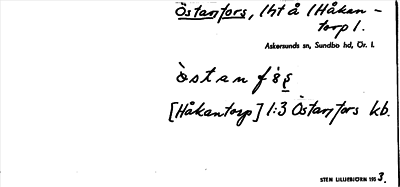 Östanfors, lht å (Håkan-
torp).
Askersunds sn, Sundbo hd, Ör. l.
[Håkantorp] 1:3 Östanfors kb.
STEN LILLIEBJÖRN 193 3.